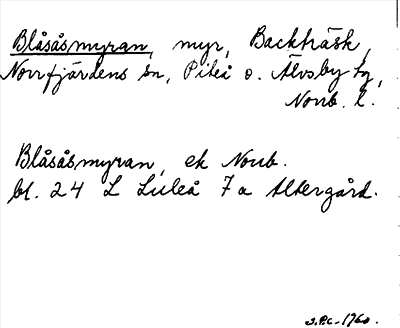 Blåsåsmyran, myr, Backträsk,
Norrfjärdens sn, Piteå o. Älvsby tg,
Norrb. l.
Blåsåsmyran, ek Norrb.
bl. 24 L Luleå 7 a Altergård.
J.P.C. 1960.